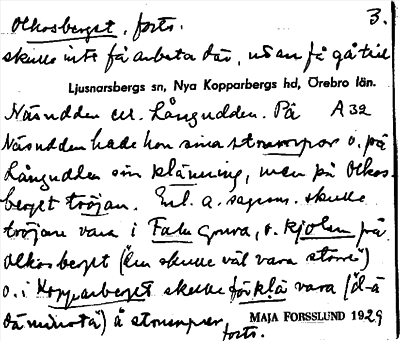 Olkosberget, forts. 3.
skulle inte få arbeta där, utan få gå till
Ljusnarsbergs sn, Nya Kopparbergs hd, Örebro län.
Näsudden ell. Långudden. På A32
Näsudden hade hon sina strumpor o. på
Långudden sin klänning, men på Olkos-
berget tröjan. Enl. a. sagesm. skulle
tröjan vara i Falu gruva, o. kjolen på
Olkosberget ("den skulle väl vara större")
o. i Kopparberget skulle förklä vara ("d-ä
dä minsta") å strumper
forts.
MAJA FORSSLUND 1929